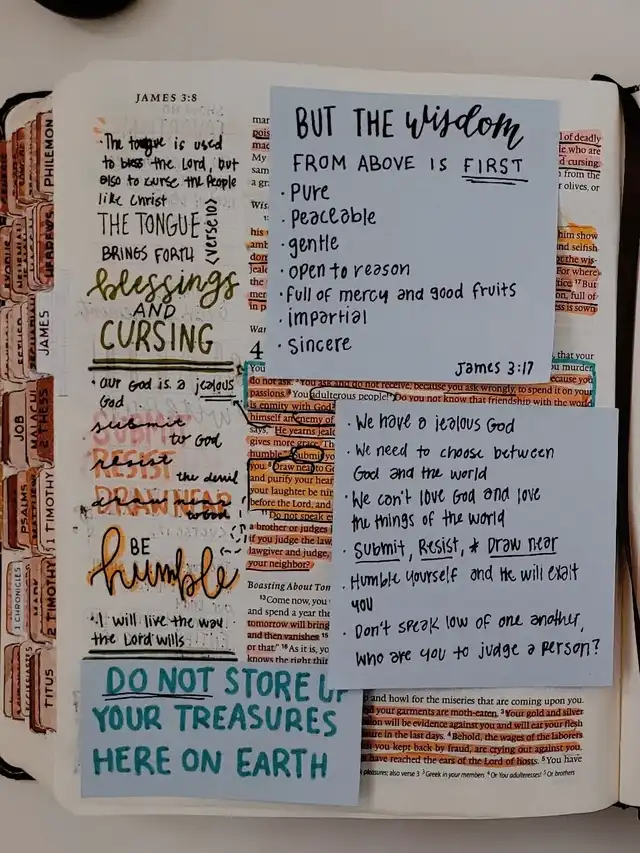 JAMES 3:8
• The tongue is used
to bless the Lord, but
also to curse the people
like Christ
THE TONGUE
BRINGS FORTH
(verse 10)
blessings
AND
CURSING
• our God is a jealous
God
submit
SUBMIT
to God
resist
RESIST
the devil
DRAW NEAR
BE
humble
• I will live the way
the Lord wills
DO NOT STORE UP
YOUR TREASURES
HERE ON EARTH
BUT THE wisdom
FROM ABOVE IS FIRST
• Pure
• Peaceable
• gentle
• open to reason
• full of mercy and good fruits
• impartial
• sincere
James 3:17
• We have a jealous God
• We need to choose between
God and the world
• We can't love God and love
the things of the world
• Submit, Resist, & Draw near
• Humble yourself and He will exalt
you
• Don't speak low of one another,
who are you to judge a person?
l of deadly
le who are
cursing.
from the
r olives, or
him show
and selfish
t the wis-
For where
17 But
on, full of
s is sown
4
s, that your
ou murder
because you
do not ask. 3 You ask and do not receive, because you ask wrongly, to spend it on your
passions. 4 You adulterous people! Do you not know that friendship with the world
is enmity with God
himself an enemy of
says, "He yearns jeal
gives more grace. The
humble." Submit
you. Draw near to G
and purify your hear
your laughter be tur
before the Lord, and
11 Do not speak e
a brother or judges
if you judge the law,
lawgiver and judge,
your neighbor?
Boasting About Tom
13 Come now, you
and spend a year the
tomorrow will bring
and then vanishes. 15
or that." 16 As it is, yo
knows the right thin
and howl for the miseries that are coming upon you.
d your garments are moth-eaten. 3 Your gold and silver
sion will be evidence against you and will eat your flesh
sure in the last days. 4 Behold, the wages of the laborers
you kept back by fraud, are crying out against you.
have reached the ears of the Lord of hosts. 5 You have
pleasures; also verse 3 3 Greek in your members 4 Or You adulteresses! 5 Or brothers
PHILEMON
HEBREWS
JAMES
2 THESS
MALACHI
JOB
1 TIMOTHY
PSALMS
MARK
2 TIMOTHY
1 CHRONICLES
TITUS